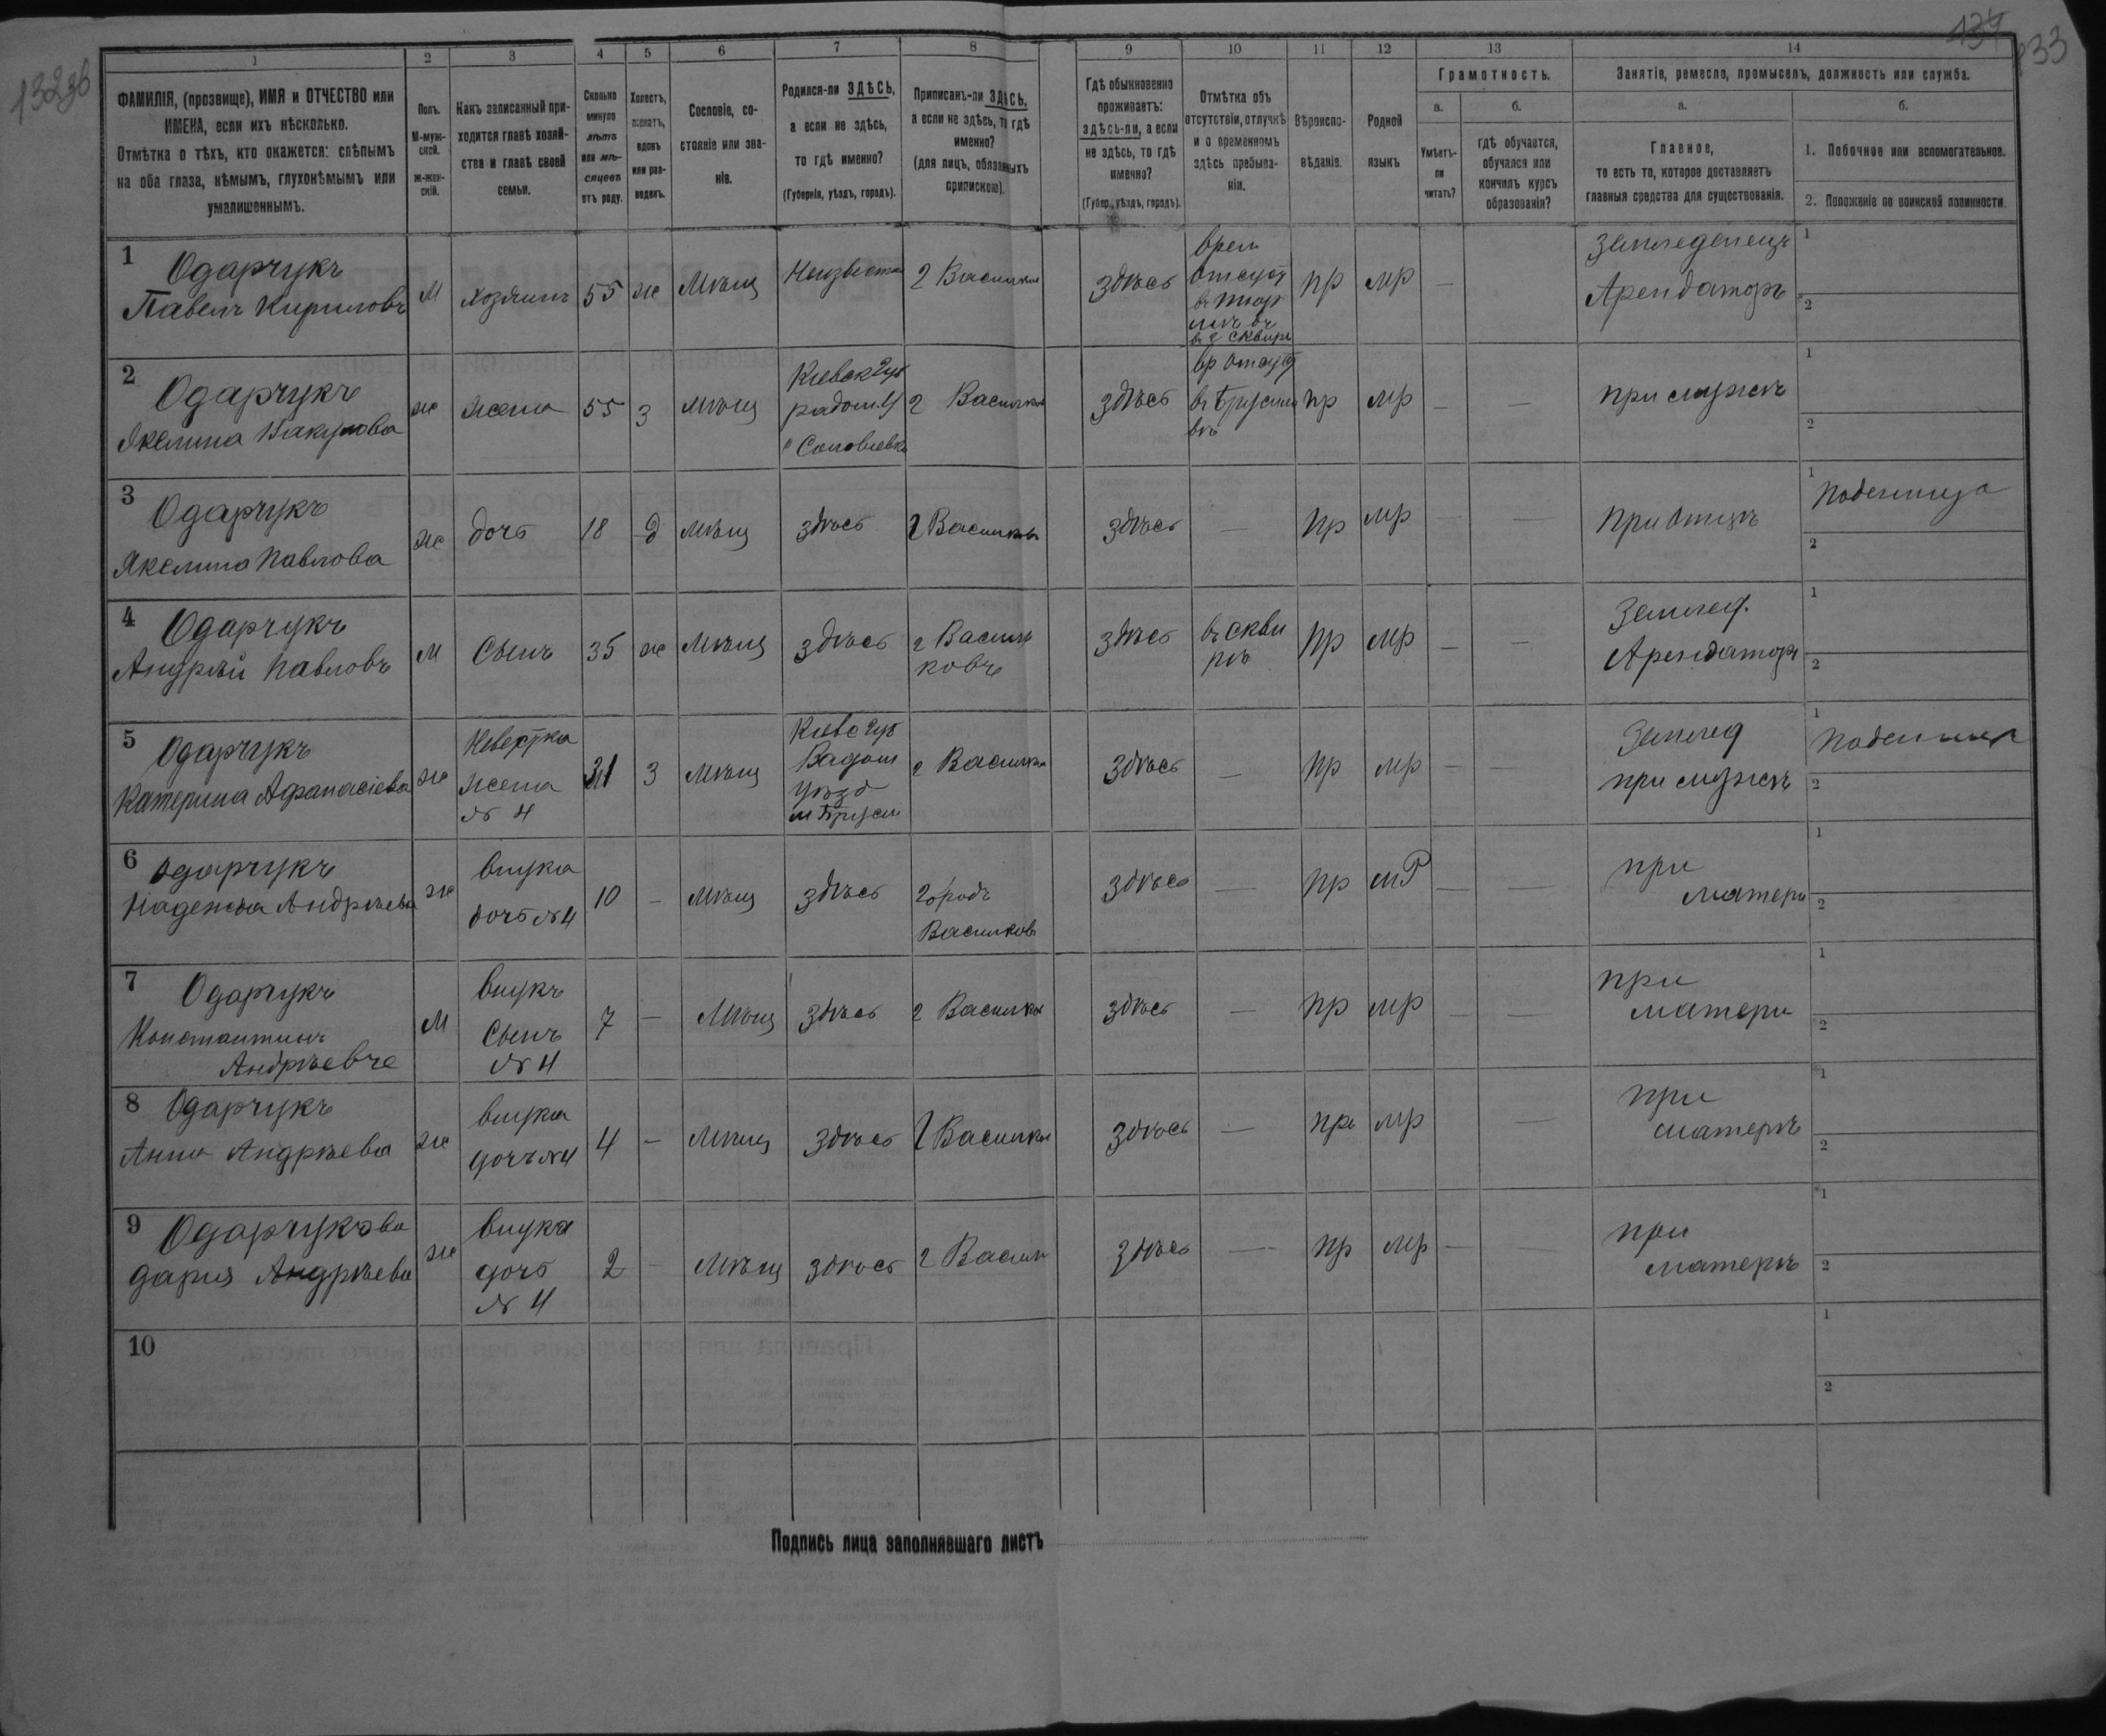 132об
134
133
1 2 3 4 5 6 7 8 9 10 11 12 13 14
ФАМИЛІЯ, (прозвище), ИМЯ и ОТЧЕСТВО или
ИМЕНА, если ихъ нѣсколько.
Отмѣтка о тѣхъ, кто окажется: слѣпымъ
на оба глаза, нѣмымъ, глухонѣмымъ или
умалишеннымъ.
Полъ.
М-муж-
ской.
Ж-жен-
скій.
Какъ записанный при-
ходится главѣ хозяй-
ства и главѣ своей
семьи.
Сколько
минуло
лѣтъ
или мѣ-
сяцевъ
отъ роду.
Холостъ,
женатъ,
вдовъ
или раз-
веденъ.
Сословіе, со-
стояніе или зва-
ніе.
Родился-ли ЗДѢСЬ,
а если не здѣсь,
то гдѣ именно?
(Губернія, уѣздъ, городъ).
Приписанъ-ли ЗДѢСЬ,
а если не здѣсь, то гдѣ
именно?
(для лицъ, обязанныхъ
припискою).
Гдѣ обыкновенно
проживаетъ:
здѣсь-ли, а если
не здѣсь, то гдѣ
именно?
(Губер., уѣздъ, городъ).
Отмѣтка объ
отсутствіи, отлучкѣ
и о временномъ
здѣсь пребыва-
ніи.
Вѣроиспо-
вѣданіе.
Родной
языкъ
Грамотность.
а. б.
Умѣетъ-
ли
читать?
гдѣ обучается,
обучался или
кончилъ курсъ
образованія?
Занятіе, ремесло, промыселъ, должность или служба.
а. б.
Главное,
то есть то, которое доставляетъ
главныя средства для существованія.
1. Побочное или вспомогательное.
2. Положеніе по воинской повинности.
1 Одарчукъ
Павелъ Кириловъ
М
хозяинъ
55
ж
Мѣщ
г Василков
здѣсь
врем
отсут
въ Сквире
пр
мр
—
Земледелецъ
Арендаторъ
1
2
2 Одарчукъ
Якелина
ж
жена
55
з
мѣщ
Киевск Губ
радом. У
Соловиевка
г Василков
здѣсь
вр отсут
пр
мр
—
—
при мужѣ
1
2
3 Одарчукъ
Якелина Павлова
ж
дочь
18
д
мѣщ
здѣсь
г Василков
здѣсь
—
пр
мр
—
—
при отцѣ
1 Поденщица
2
4 Одарчукъ
Андрѣй Павловъ
М
Сынъ
35
ж
Мѣщ
здѣсь
г Василь
ковъ
здѣсь
въ Скви
рѣ
пр
мр
—
—
Землед.
Арендатор
1
2
5 Одарчукъ
Катерина Афанасіева
ж
Невестка
жена
№ 4
31
з
мѣщ
Киевс Губ
Радом
уѣзд
м Брусил
г Василков
здѣсь
—
пр
мр
—
—
Землед
при мужѣ
1
2
6 Одарчукъ
Надежда Андрѣева
ж
внука
дочь №4
10
—
мѣщ
здѣсь
городъ
Василков
здѣсь
—
пр
мР
—
—
при
матери
1
2
7 Одарчукъ
Константинъ
Андрѣевче
М
внукъ
Сынъ
№ 4
7
—
Мѣщ
здѣсь
г Василков
здѣсь
—
пр
мр
—
—
при
матери
1
2
8 Одарчукъ
Анна Андрѣева
ж
внука
дочъ №4
4
—
мѣщ
здѣсь
г Василков
здѣсь
—
пр
мр
—
при
матерѣ
1
2
9 Одарчукова
дария Андрѣева
ж
внука
дочь
№ 4
2
—
Мѣщ
здѣсь
г Васил
здѣсь
—
пр
мр
—
—
при
матерѣ
1
2
10
1
2
Подпись лица заполнявшаго листъ